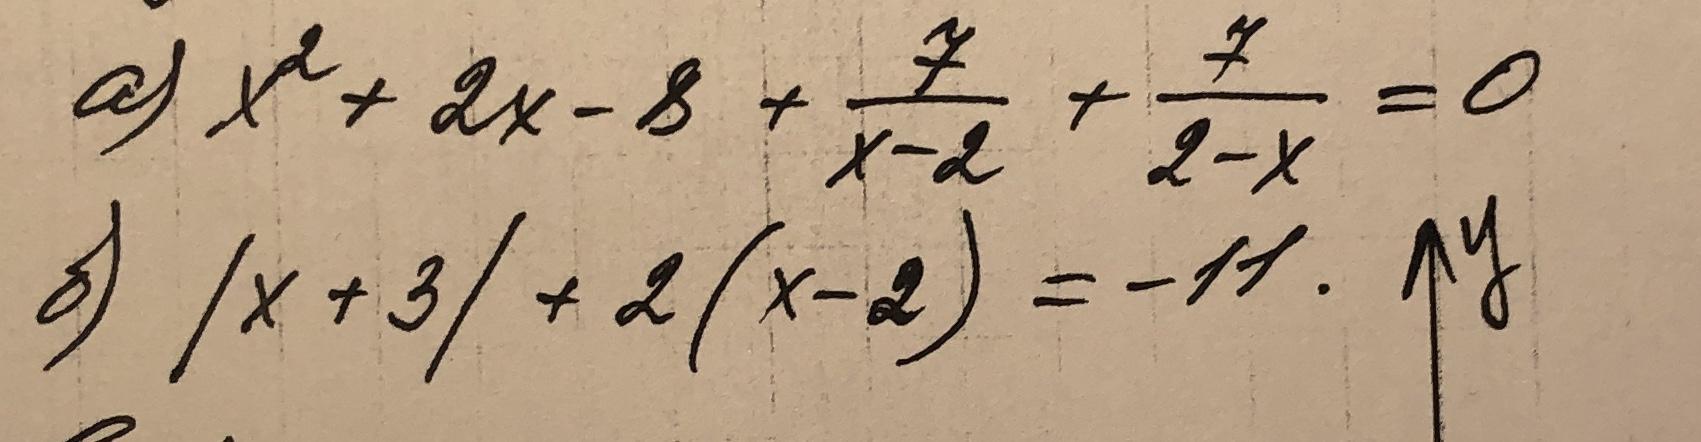 а) x² + 2x - 8 + 7/(x-2) + 7/(2-x) = 0
б) |x + 3| + 2(x - 2) = -11. y